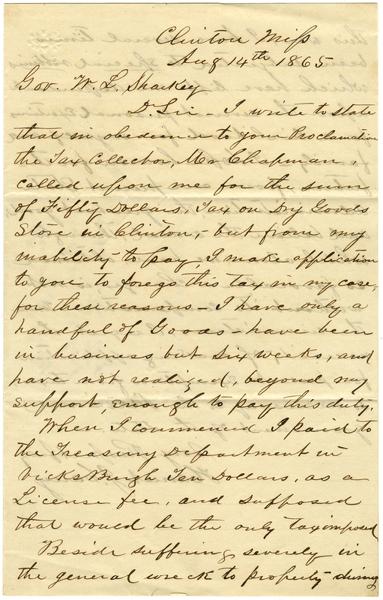 Clinton Miss
Aug 14th 1865
Gov. W. L. Sharkey
D. Sir - I write to state
that in obedience to your Proclamation
the Tax Collector, Mr Chapman,
called upon me for the sum
of Fifty Dollars, Tax on Dry Goods
Store in Clinton, - but from my
inability to pay I make application
to you to forego this tax in my case,
for these reasons - I have only a
handful of Goods - have been
in business but six weeks, and
have not realized, beyond my
support, enough to pay this duty.
When I commenced I paid to
the Treasury Department in
Vicks Burgh Ten Dollars, as a
License fee, and supposed
that would be the only tax imposed
Beside suffering severely in
the general wreck to property during